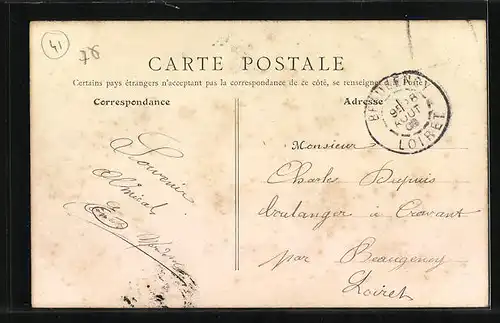 41
78
CARTE POSTALE
Certains pays étrangers n'acceptant pas la correspondance de ce côté, se renseigner à la Poste
Correspondance
Adresse
BEAUGENCY
AOUT
LOIRET
Souvenir
Amical
Monsieur
Charles Dupuis
boulanger à Cravant
par Beaugency
Loiret